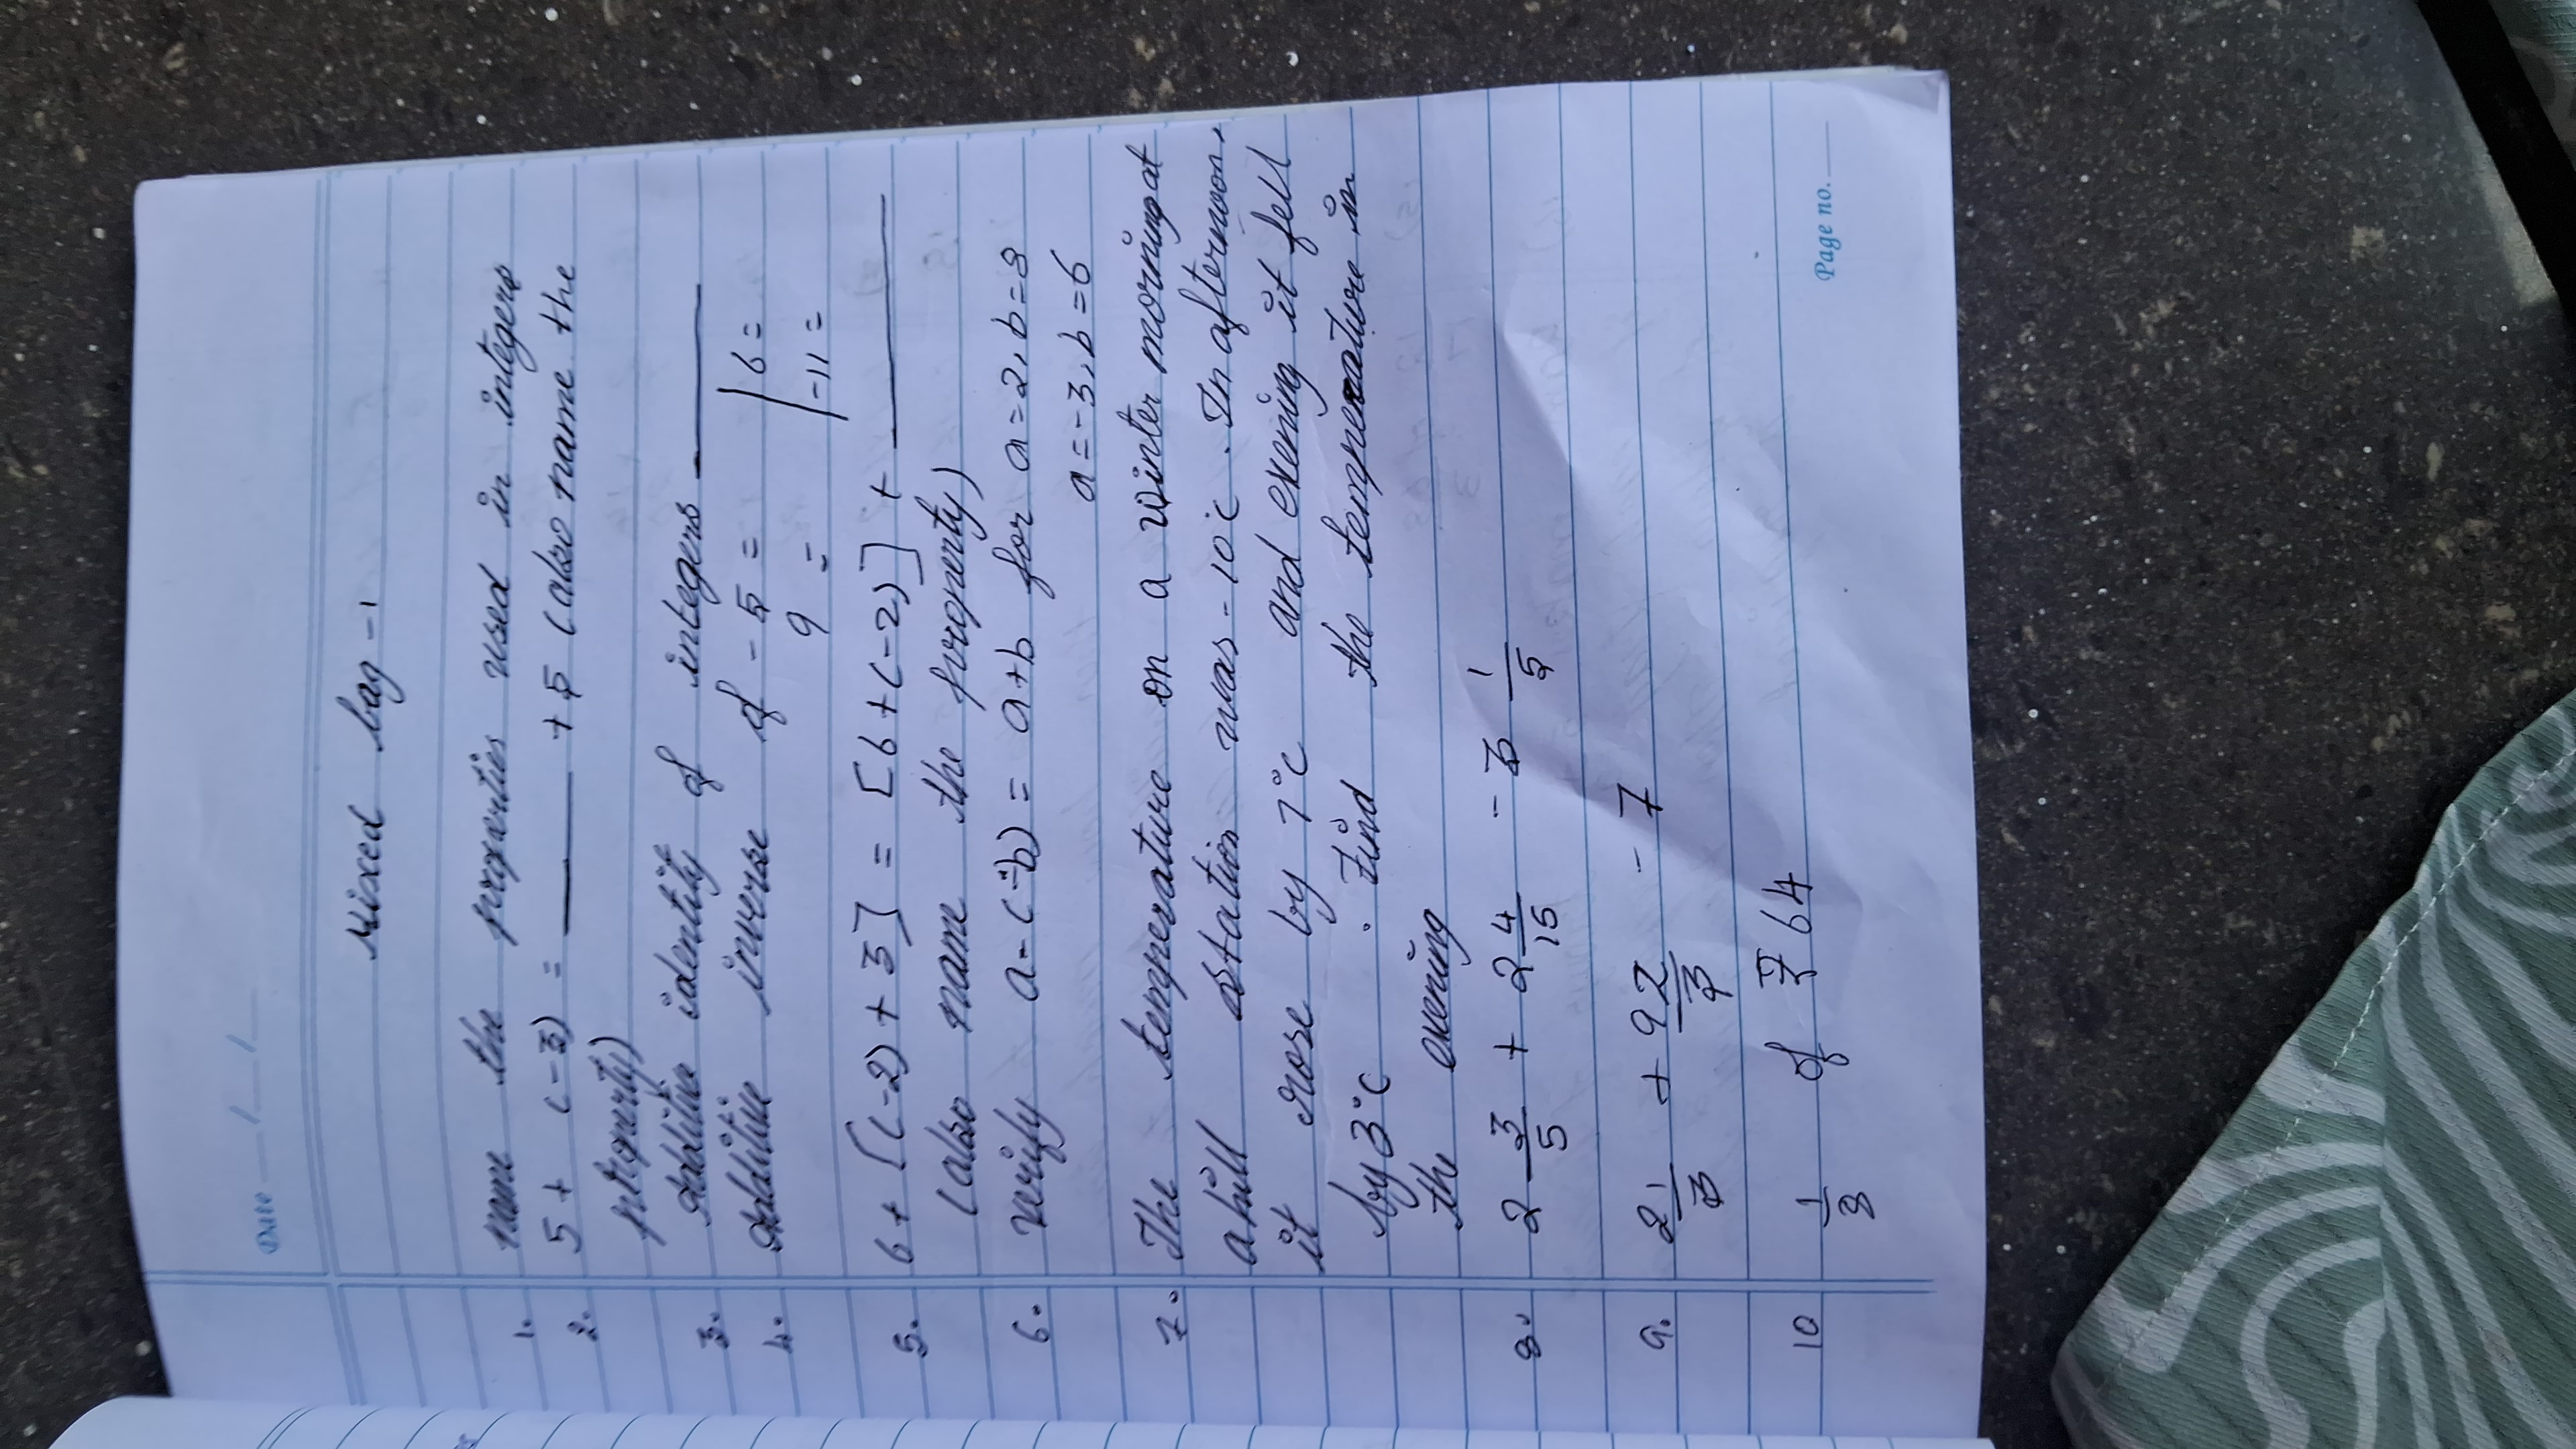 Date __/__/__
Mixed bag -1
1. name the properties used in integers
2. 5 + (-3) = ____ + 5 (also name the
property)
3. Additive identity of integers ____
4. Additive inverse of -5 = | 6 =
9 = | -11 =
5. 6 + [(-2) + 3] = [6 + (-2)] + ____
(also name the property)
6. verify a - (-b) = a + b for a = 2, b = 3
a = -3, b = 6
7. The temperature on a winter morning at
a hill station was -10°C. In afternoon,
it rose by 7°C and evening it fell
by 3°C. Find the temperature in
the evening
8. 2 3/5 + 2 4/15 - 3 1/5
9. 2 1/3 + 9 2/3 - 7
10 1/3 of 764
Page no. ____